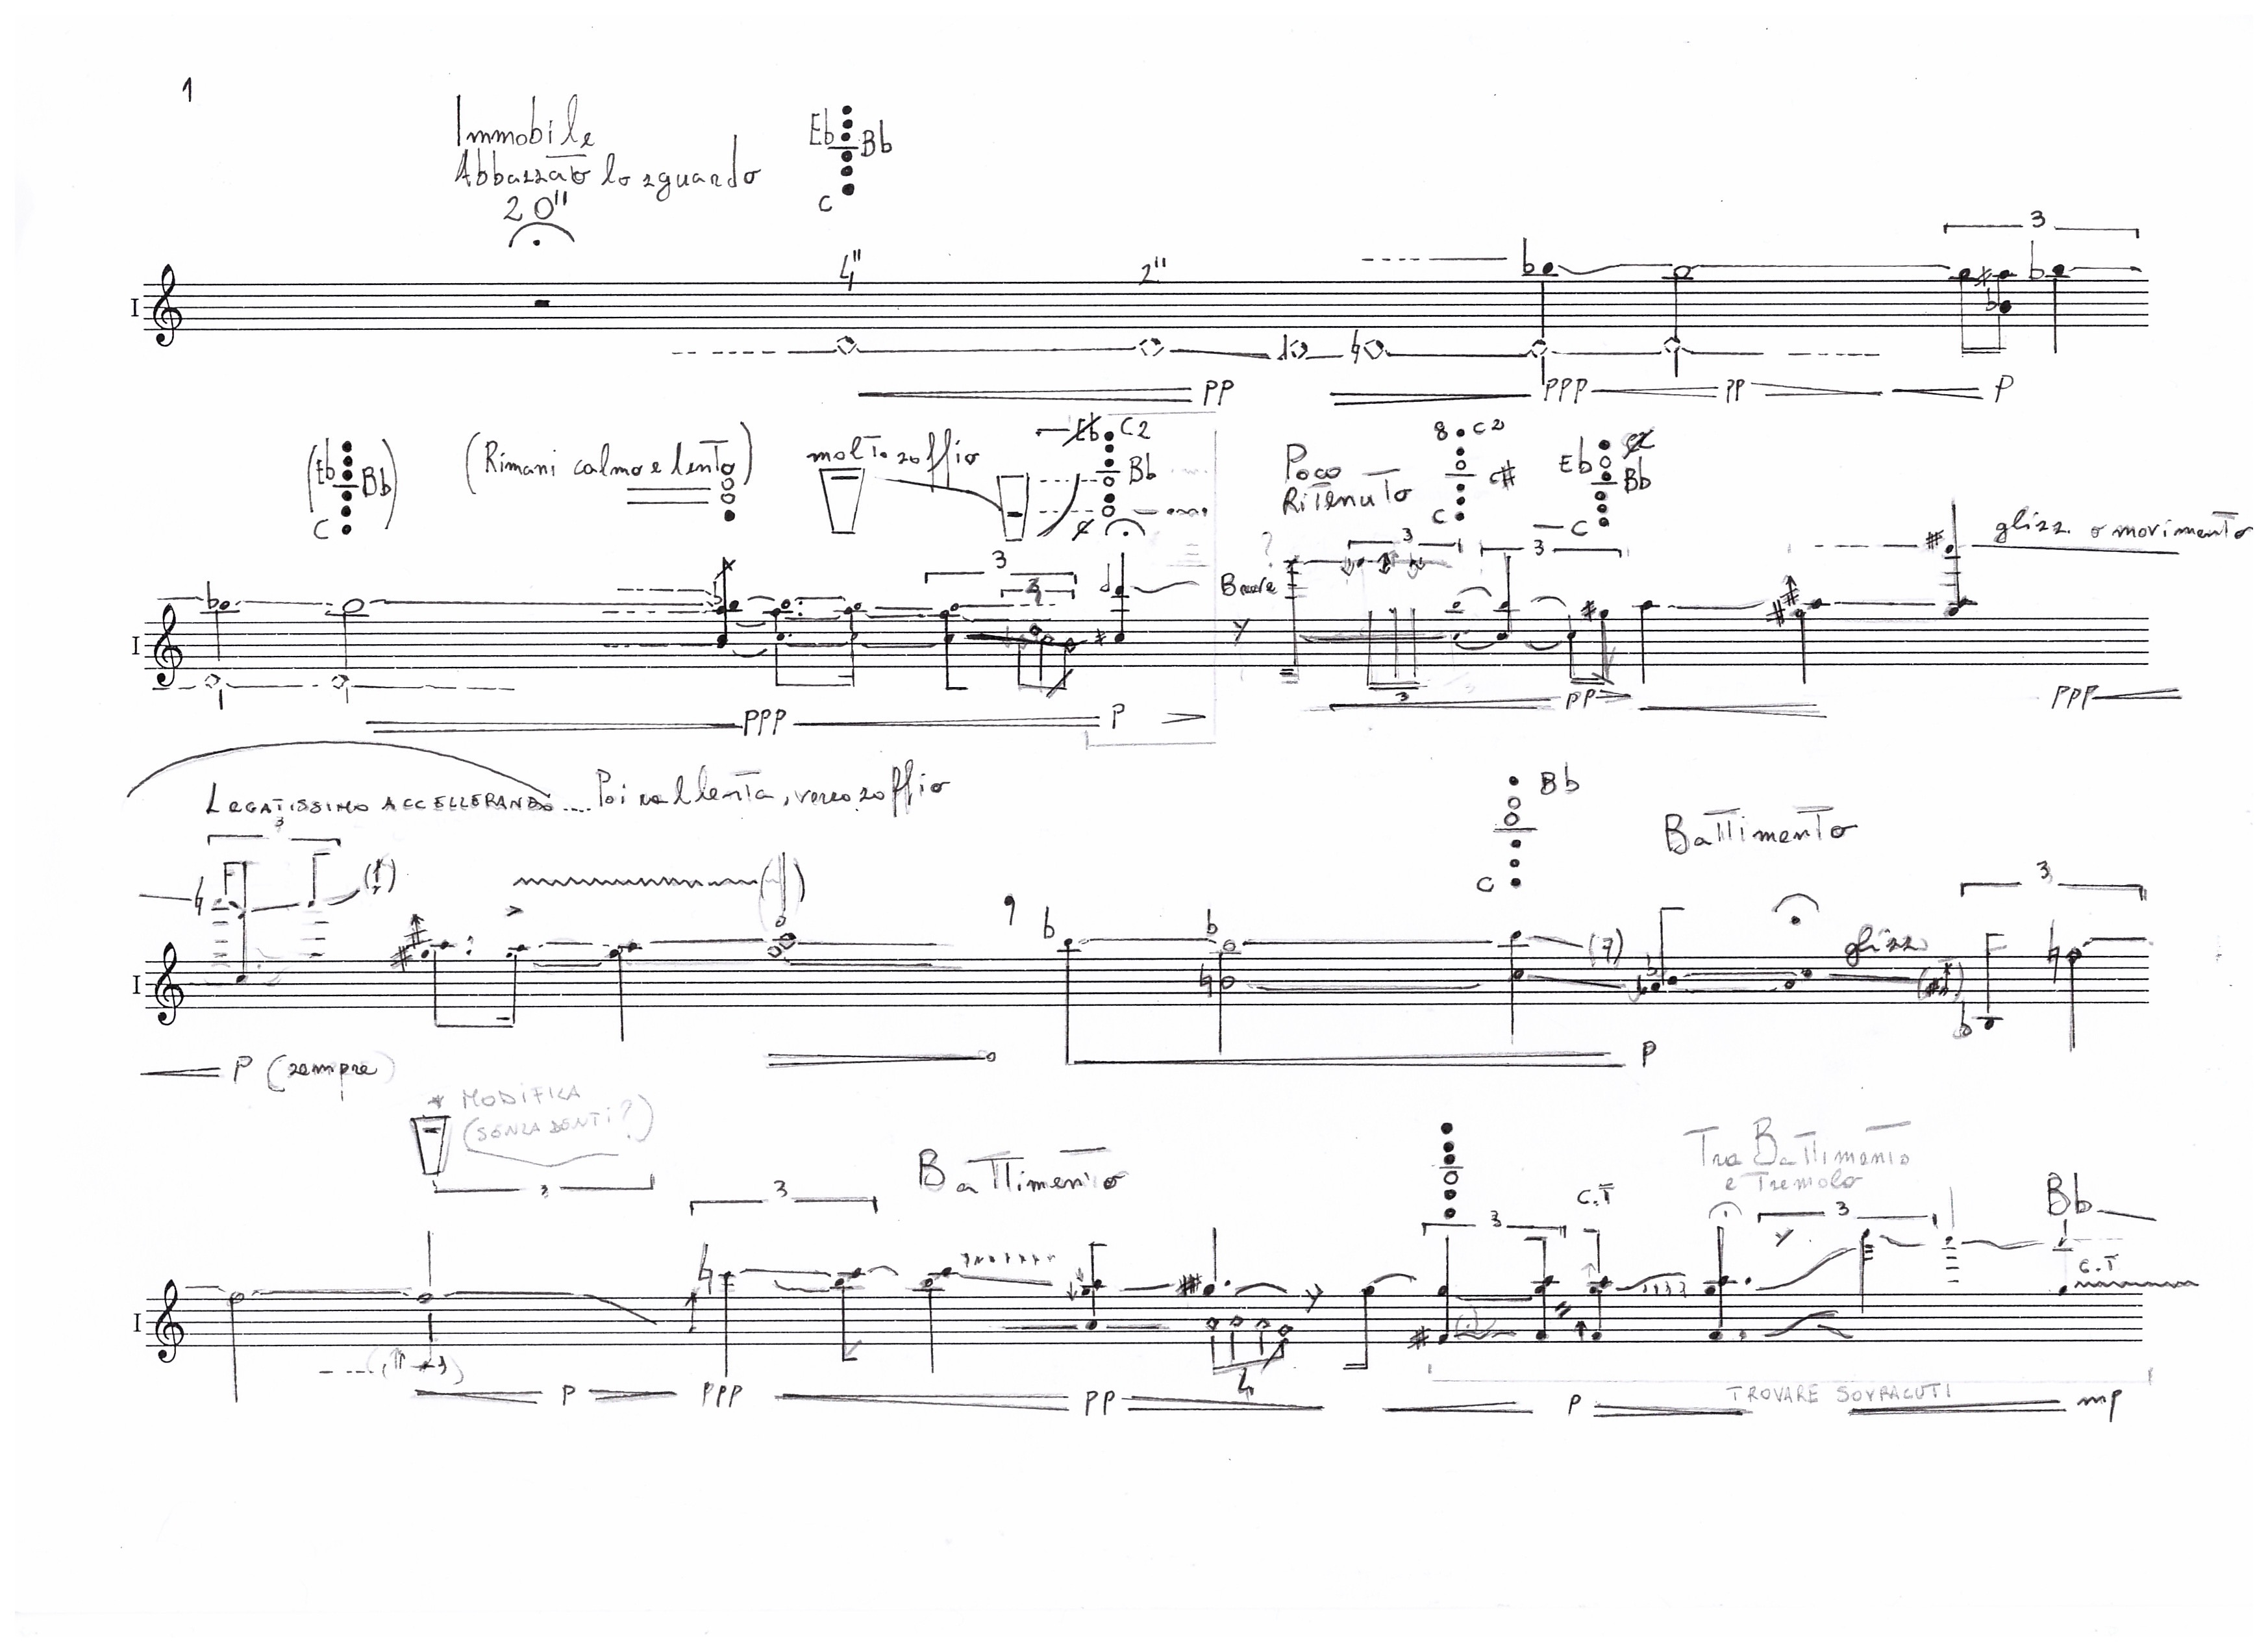 1
Immobile
Abbazzato lo zguardo
20"
Eb Bb
C
4" 2"
3
I
pp ppp pp p
(Eb Bb)
C
(Rimani calmo e lento)
molto zoffio
Eb C2
Bb
Poco
Ritenuto
8 C2
C#
C
Eb
Bb
C
glizz. o movimento
3 3
3 3
?
Breve
I
3
ppp p pp ppp
Legatissimo accellerando.... Poi rallenta, verso zoffio
3
Bb
C
Battimento
3
glizz
I
p (zempre) p
* MODIFICA
(SENZA DENTI?)
3
3
Battimento
3
C.T
Tra Battimento
e Tremolo
3
Bb
C.T
I
4
p ppp pp p mp
TROVARE SOVRACUTI